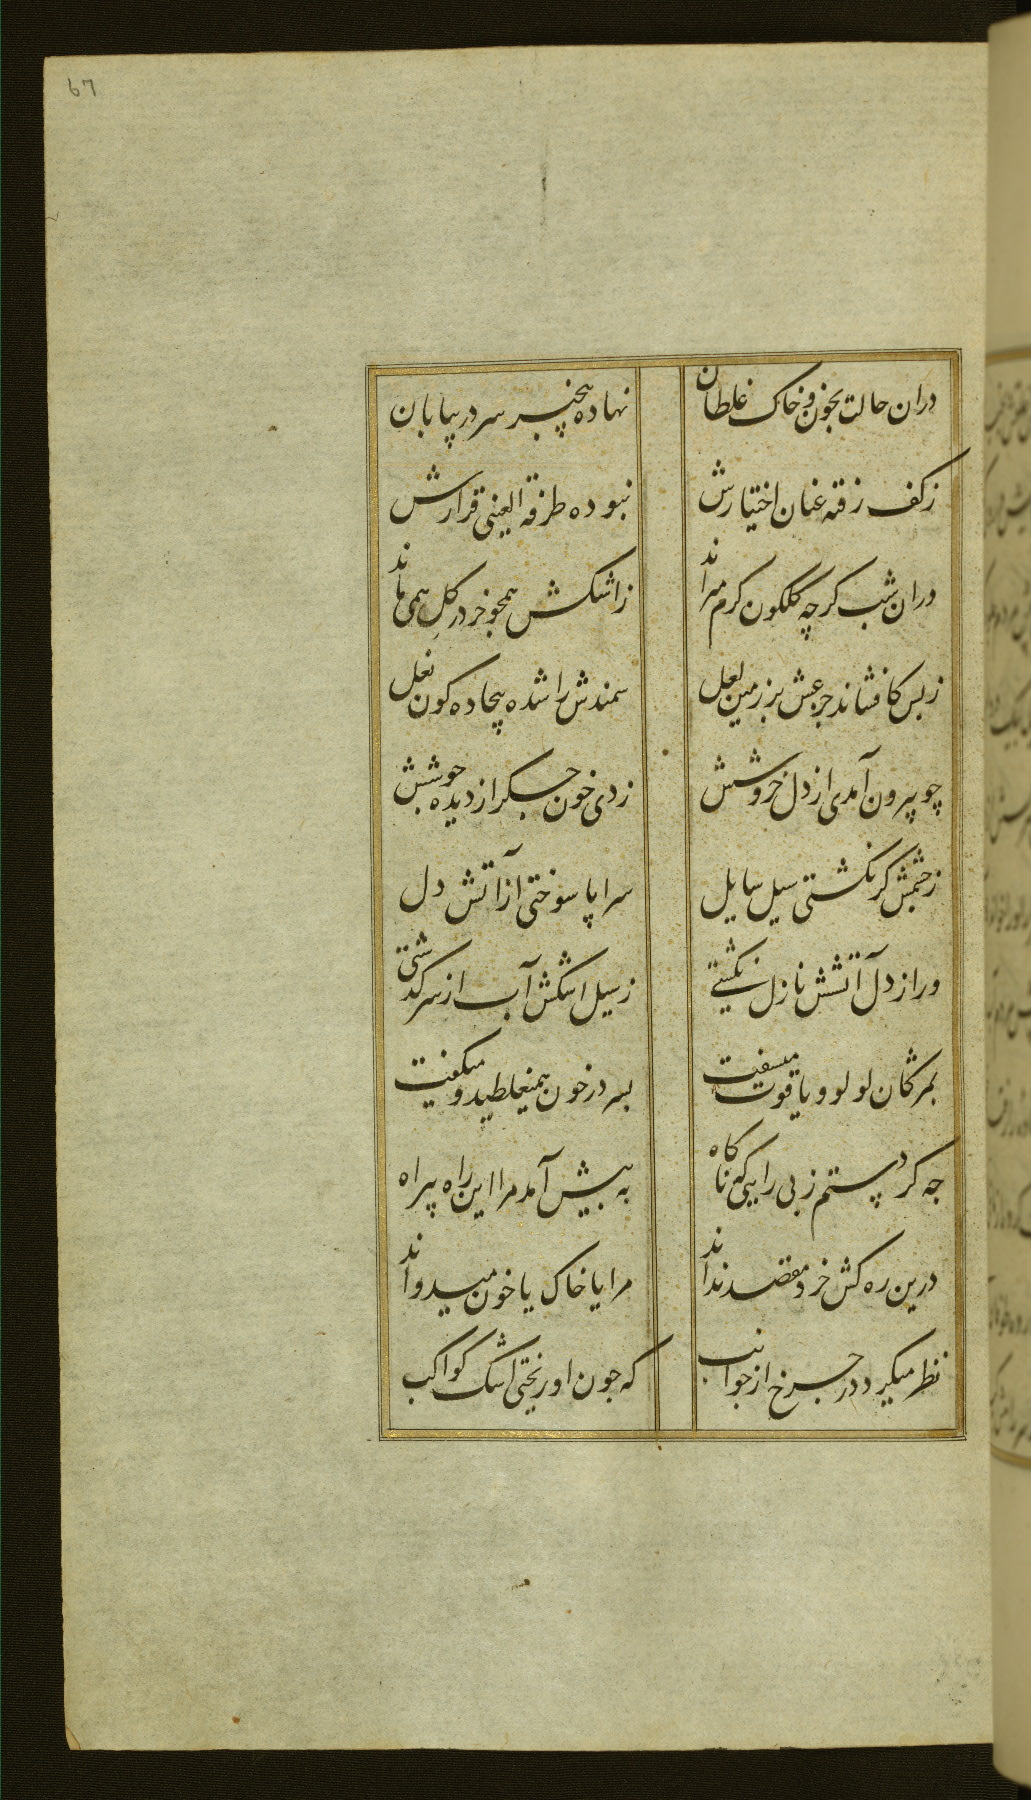 67
دران حالت بخون و خاک غلطان
نهاده بیخبر سر در بیابان
ز کف رفته عنان اختیارش
نبوده طرفة العینی قرارش
دران شب کرچه کلکون کرم میراند
ز اشکش همچو خر در کل همی ماند
ز بس کافشاند جزعش بر زمین لعل
سمندش را شده بیجاده کون نعل
چو بیرون آمدی از دل خروشش
زدی خون جکر از دیده جوشش
ز چشمش کر نکشتی سیل سایل
سراپا سوختی از آتش دل
ور از دل آتشش نازل نکشتی
ز سیل اشکش آب از سر کذشتی
بمژکان لولو و یاقوت میسفت
بسر در خون همیغلطید و میکفت
چه کردستم ز بی رایی که ناکاه
به پیش آمد مرا این راه بیراه
درین ره کش خرد مقصد نداند
مرا یا خاک یا خون میدواند
نظر میکرد در چرخ از جوانب
که چون او ریختی اشک کواکب